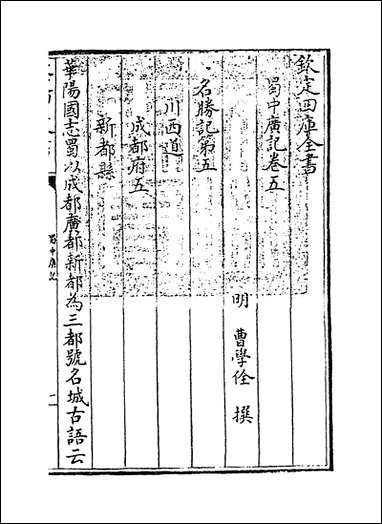 欽定四庫全書
蜀中廣記卷五
明 曹學佺 撰
名勝記第五
川西道
成都府五
新都縣
華陽國志蜀以成都廣都新都為三都號名城古語云
蜀中廣記